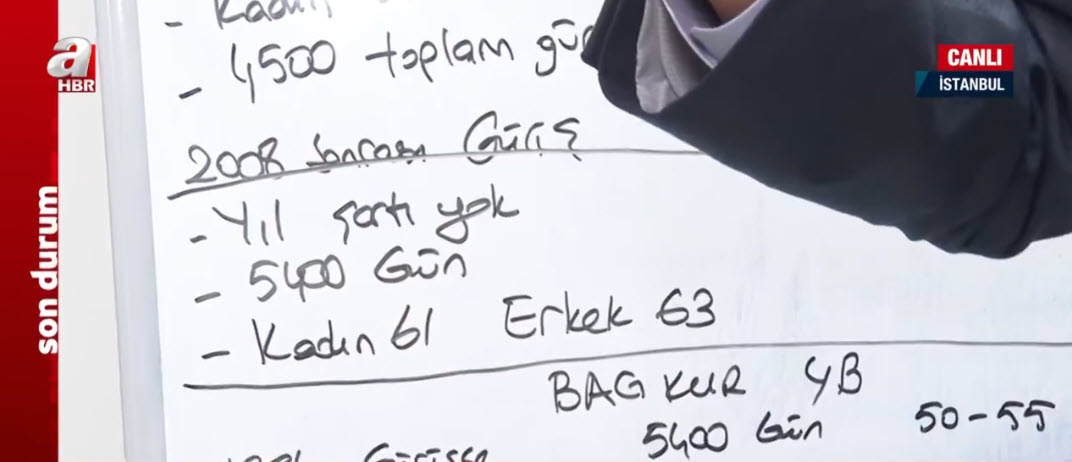 a
HBR
CANLI
İSTANBUL
son durum
- Kadın
- 4500 toplam gün
2008 Sonrası Giriş
- Yıl şartı yok
- 5400 Gün
- Kadın 61 Erkek 63
BAG KUR 4B
5400 Gün 50-55